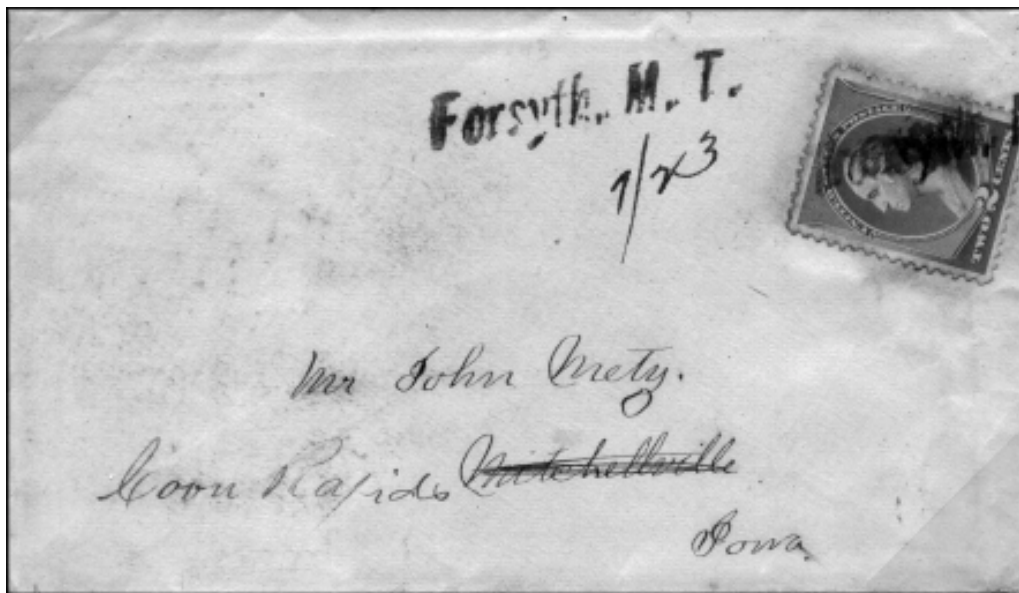 Forsyth. M. T.
7/23
TWO 2 CENTS
Mr John Metz.
Coon Rapids Mitchellville
Iowa